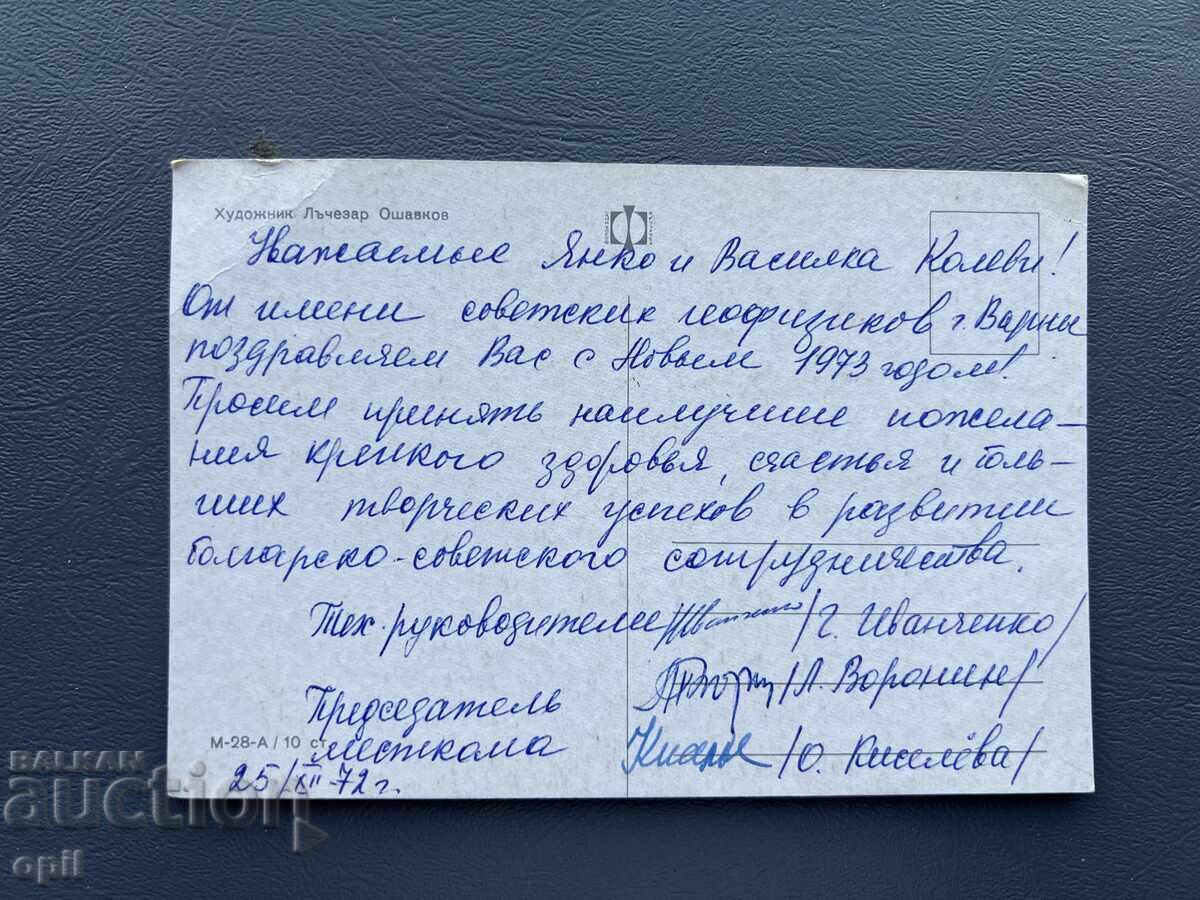 Художник Лъчезар Ошавков
Уважаемые Янко и Василка Колеви!
От имени советских геофизиков г. Варны
поздравляем Вас с Новым 1973 годом!
Просим принять наилучшие пожела-
ния крепкого здоровья, счастья и боль-
ших творческих успехов в развитии
болгарско-советского сотрудничества.
Тех. руководители /Г. Иванченко/
/Л. Воронин/
Председатель
месткома /О. Киселёва/
М-28-А / 10 ст.
25/XII-72 г.
BALKAN
auction
opil